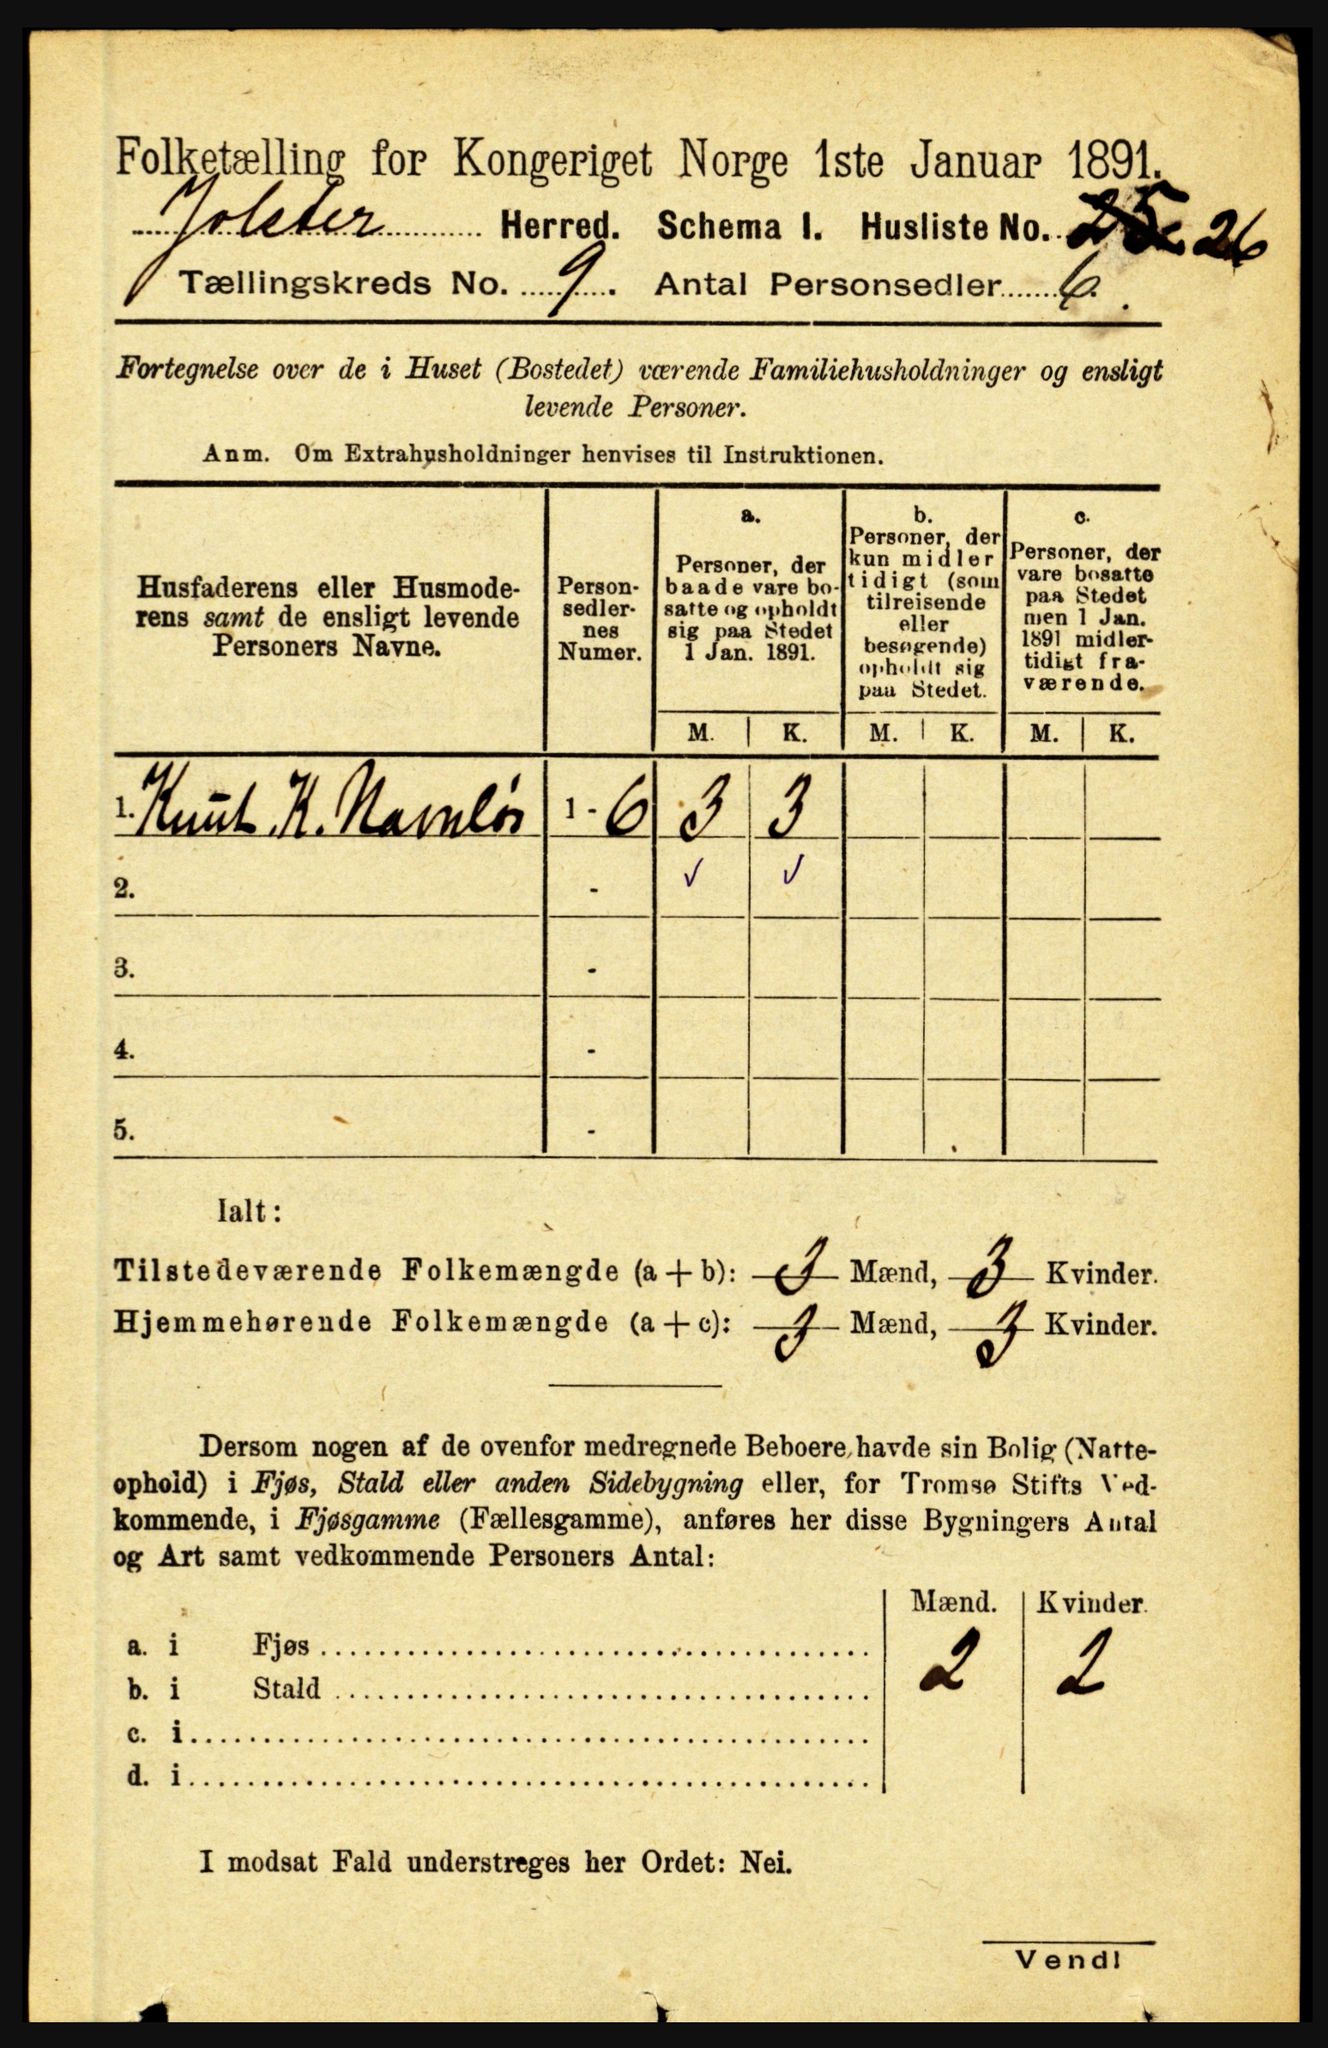 Folketælling for Kongeriget Norge 1ste Januar 1891.
Jølster Herred. Schema I. Husliste No. 25 26
Tællingskreds No. 9. Antal Personsedler 6.
Fortegnelse over de i Huset (Bostedet) værende Familiehusholdninger og ensligt
levende Personer.
Anm. Om Extrahusholdninger henvises til Instruktionen.
Husfaderens eller Husmode-
rens samt de ensligt levende
Personers Navne.
Person-
sedler-
nes
Numer.
a.
Personer, der
baade vare bo-
satte og opholdt
sig paa Stedet
1 Jan. 1891.
b.
Personer, der
kun midler
tidigt (som
tilreisende
eller
besøgende)
opholdt sig
paa Stedet.
c.
Personer, der
vare bosatte
paa Stedet
men 1 Jan.
1891 midler-
tidigt fra-
værende.
M. K. M. K. M. K.
1. Knut K. Navnløs 1 - 6 3 3
2. - ✓ ✓
3. -
4. -
5. -
Ialt:
Tilstedeværende Folkemængde (a + b): 3 Mænd, 3 Kvinder.
Hjemmehørende Folkemængde (a + c): 3 Mænd, 3 Kvinder.
Dersom nogen af de ovenfor medregnede Beboere havde sin Bolig (Natte-
ophold) i Fjøs, Stald eller anden Sidebygning eller, for Tromsø Stifts Ved-
kommende, i Fjøsgamme (Fællesgamme), anføres her disse Bygningers Antal
og Art samt vedkommende Personers Antal:
Mænd. Kvinder.
a. i Fjøs 2 2
b. i Stald
c. i
d. i
I modsat Fald understreges her Ordet: Nei.
Vend!